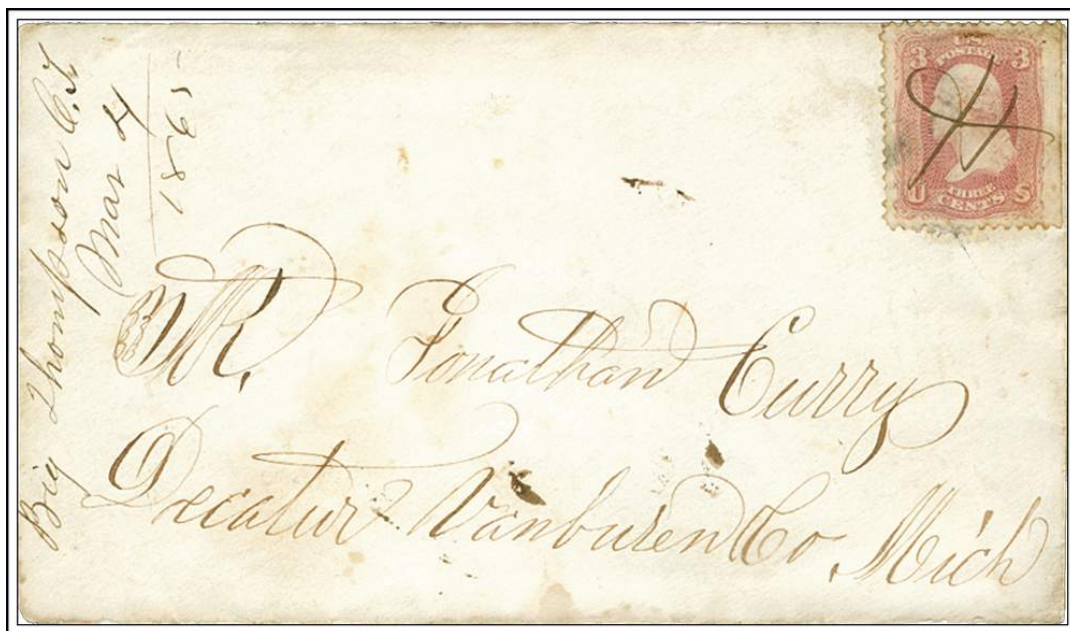 Big Thompson C.T.
Mar 4
U.S. POSTAGE
3 3
THREE CENTS
U S
MR. Jonathan Curry
Decatur Vanburen Co Mich